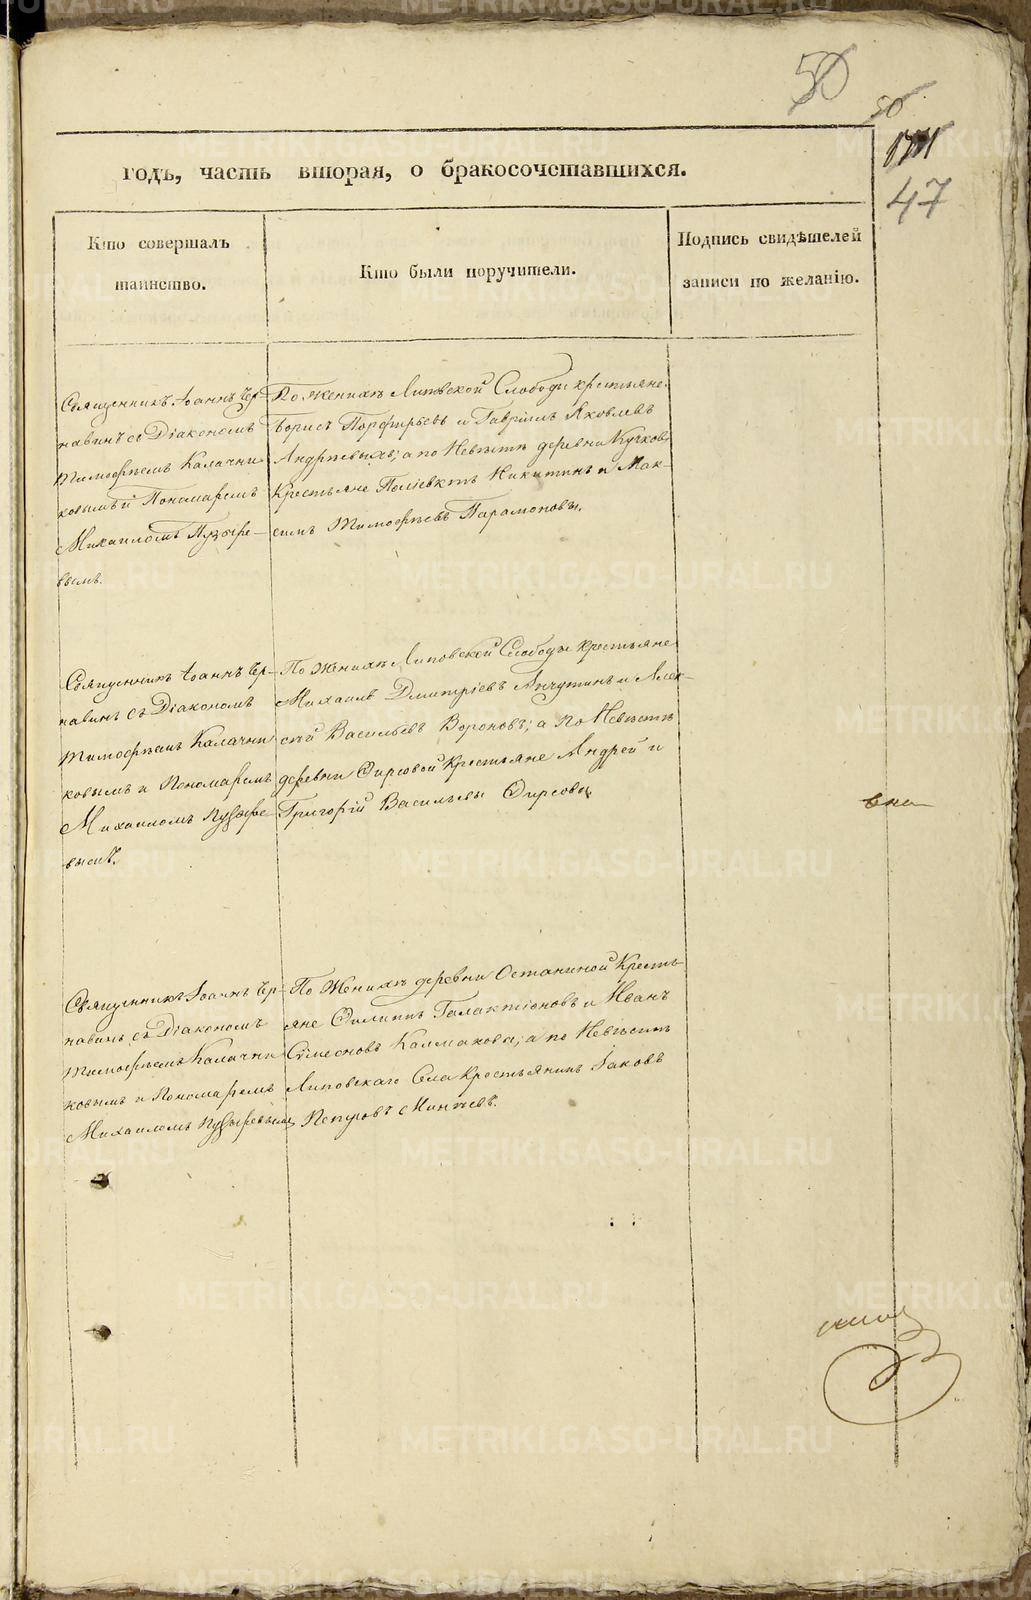 50
50
47
годъ, часть вторая, о бракосочетавшихся.
Кто совершалъ
таинство.
Кто были поручители.
Подпись свидѣтелей
записи по желанію.
Священникъ Іоаннъ Чер-
навинъ съ Діакономъ
Тимофѣемъ Калачни-
ковымъ и Пономаремъ
Михаиломъ Пузыре-
вымъ.
По женихѣ Липовской Слободы крестьяне
Борисъ Порфирьевъ и Гаврiилъ Яковлевъ
Андрѣевыхъ; а по Невѣстѣ деревни Кучков
Крестьяне Полiевктъ Никитинъ и Мак-
симъ Тимофѣевъ Парамоновы.
Священникъ Іоаннъ Чер-
навинъ съ Діакономъ
Тимофѣемъ Калачни
ковымъ и Пономаремъ
Михаиломъ Пузыре-
вымъ.
По Женихѣ Липовской Слободы крестьяне
Михаилъ Дмитріевъ Анчутинъ и Алек-
сѣй Васильевъ Вороновъ; а по Невѣстѣ
деревни Фирсовой Крестьяне Андрей и
Григорій Васильевы Фирсовы
Священникъ Іоаннъ Чер-
навинъ съ Діакономъ
Тимофѣемъ Калачни
ковымъ и Пономаремъ
Михаиломъ Пузыревымъ
По Женихѣ деревни Останиной Кресть-
яне Филиппъ Галактіоновъ и Иванъ
Сѵмеоновъ Калмаковы; а по Невѣстѣ
Липовскаго Села Крестьянинъ Іаковъ
Петровъ Минѣевъ.
METRIKI.GASO-URAL.RU